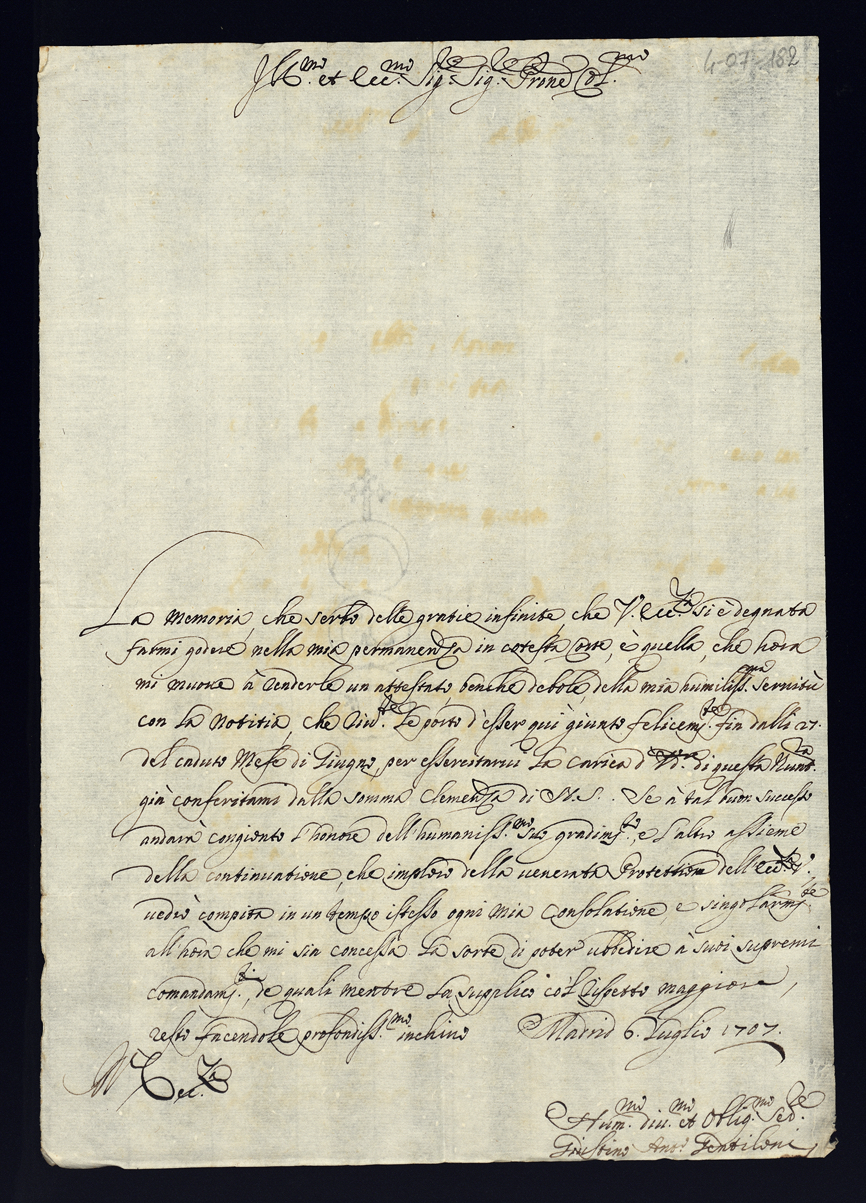 Ill.mo et Ecc.mo Sig.re Sig.re Prone Col.mo
4-07-182
La memoria, che serbo delle gratie infinite, che V. Ecc.za si è degnata
farmi godere nella mia permanenza in cotesta Corte, è quella, che hora
mi muove à renderle un attestato benche debole, della mia humiliss.ma servitù
con la notitia, che riv.te le porto d'esser qui giunto felicem.te fin dalli 27.
del caduto Mese di Giugno, per essercitarvi la carica d' di questa Nunt.ra
già conferitami dalla somma Clemenza di N. S.. Se à tal buon successo
andarà congionto l'honore dell'humaniss.mo suo gradim.to, e l'altro assieme
della continuatione, che imploro della venerata Protettione dell'Ecc.za V.
vedrò compita in un tempo istesso ogni mia consolatione, e singolarm.te
all'hora che mi sia concessa la sorte di poter ubbidire à suoi supremi
comandam.ti, de quali mentre la supplico col rispetto maggiore,
resto facendole profondiss.mo inchino Madrid 6. Luglio 1707.
V. Ecc.za
Hum.mo div.mo et Oblig.mo Ser.re
Giustino Ant.o Gentiloni